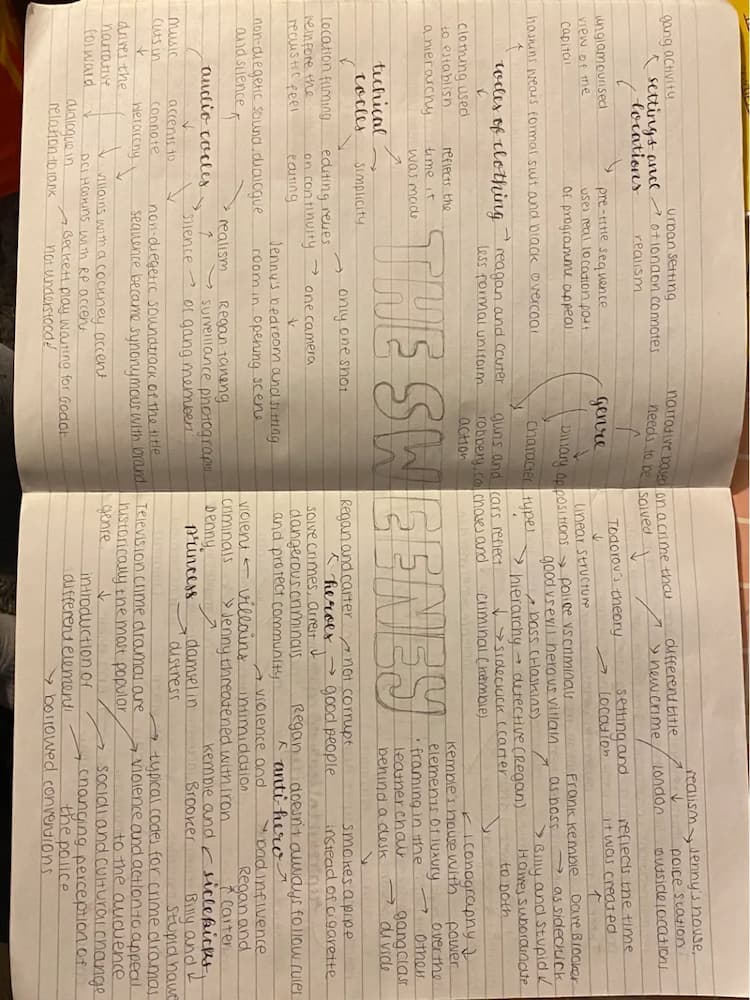 THE SWEENEY
settings and
locations
gang activity
unglamourised
view of the
capital
urban setting
of london connotes
realism
pre-title sequence
uses real location part
of programme appeal
codes of clothing
haskins wears formal suit and black overcoat
regan and carter
less formal uniform
clothing used
to establish
a hierarchy
reflects the
time it
was made
technical
codes
simplicity
only one shot
location filming
reinforce the
realistic feel
editing relies
on continuity
editing
one camera
Jenny's bedroom and sitting
room in opening scene
audio codes
non-diegetic sound, dialogue
and silence
realism
Regan taking
surveillance photographs
of gang members
silence
music
cuts in
drives the
narrative
forward
accents to
connote
hierarchy
non-diegetic soundtrack of the title
sequence became synonymous with brand
villains with a cockney accent
Haskins with RP accent
dialogue in
relation to rank
Beckett play Waiting for Godot
not understood
genre
narrative based on a crime that
needs to be solved
different title
new crime
London
realism
Jenny's house,
police station
outside locations
Todorov's theory
linear structure
setting and
location
reflects the time
it was created
binary oppositions
police vs criminals
good vs evil heros villain
character types
hierarchy
boss (Haskins)
detective (Regan)
sidekick (Carter
criminal (Kemble)
Frank Kemble
as boss
Dave Brooker
as sidekick
Billy and Stupid
Hawes subordinate
to both
guns and
robbery, car
action
cars reflect
chases and
iconography
Kemble's house with
elements of luxury
framing in the
leather chair
behind a desk
power
over the
other
gang class
divide
smokes a pipe
instead of cigarette
heroes
Regan and carter
solve crimes, arrest
dangerous criminals
and protect community
not corrupt
good people
anti-hero
Regan doesn't always follow rules
bad influence
Regan and
Carter
villains
violent
criminals
violence and
intimidation
Jenny threatened with iron
princess
Jenny
damsel in
distress
sidekicks
Kemble and
Brooker
Billy and
Stupid Hawes
Television crime dramas are
historically the most popular
genre
typical codes for crime dramas
violence and action to appeal
to the audience
social and cultural change
introduction of
different elements
changing perception of
the police
borrowed conventions